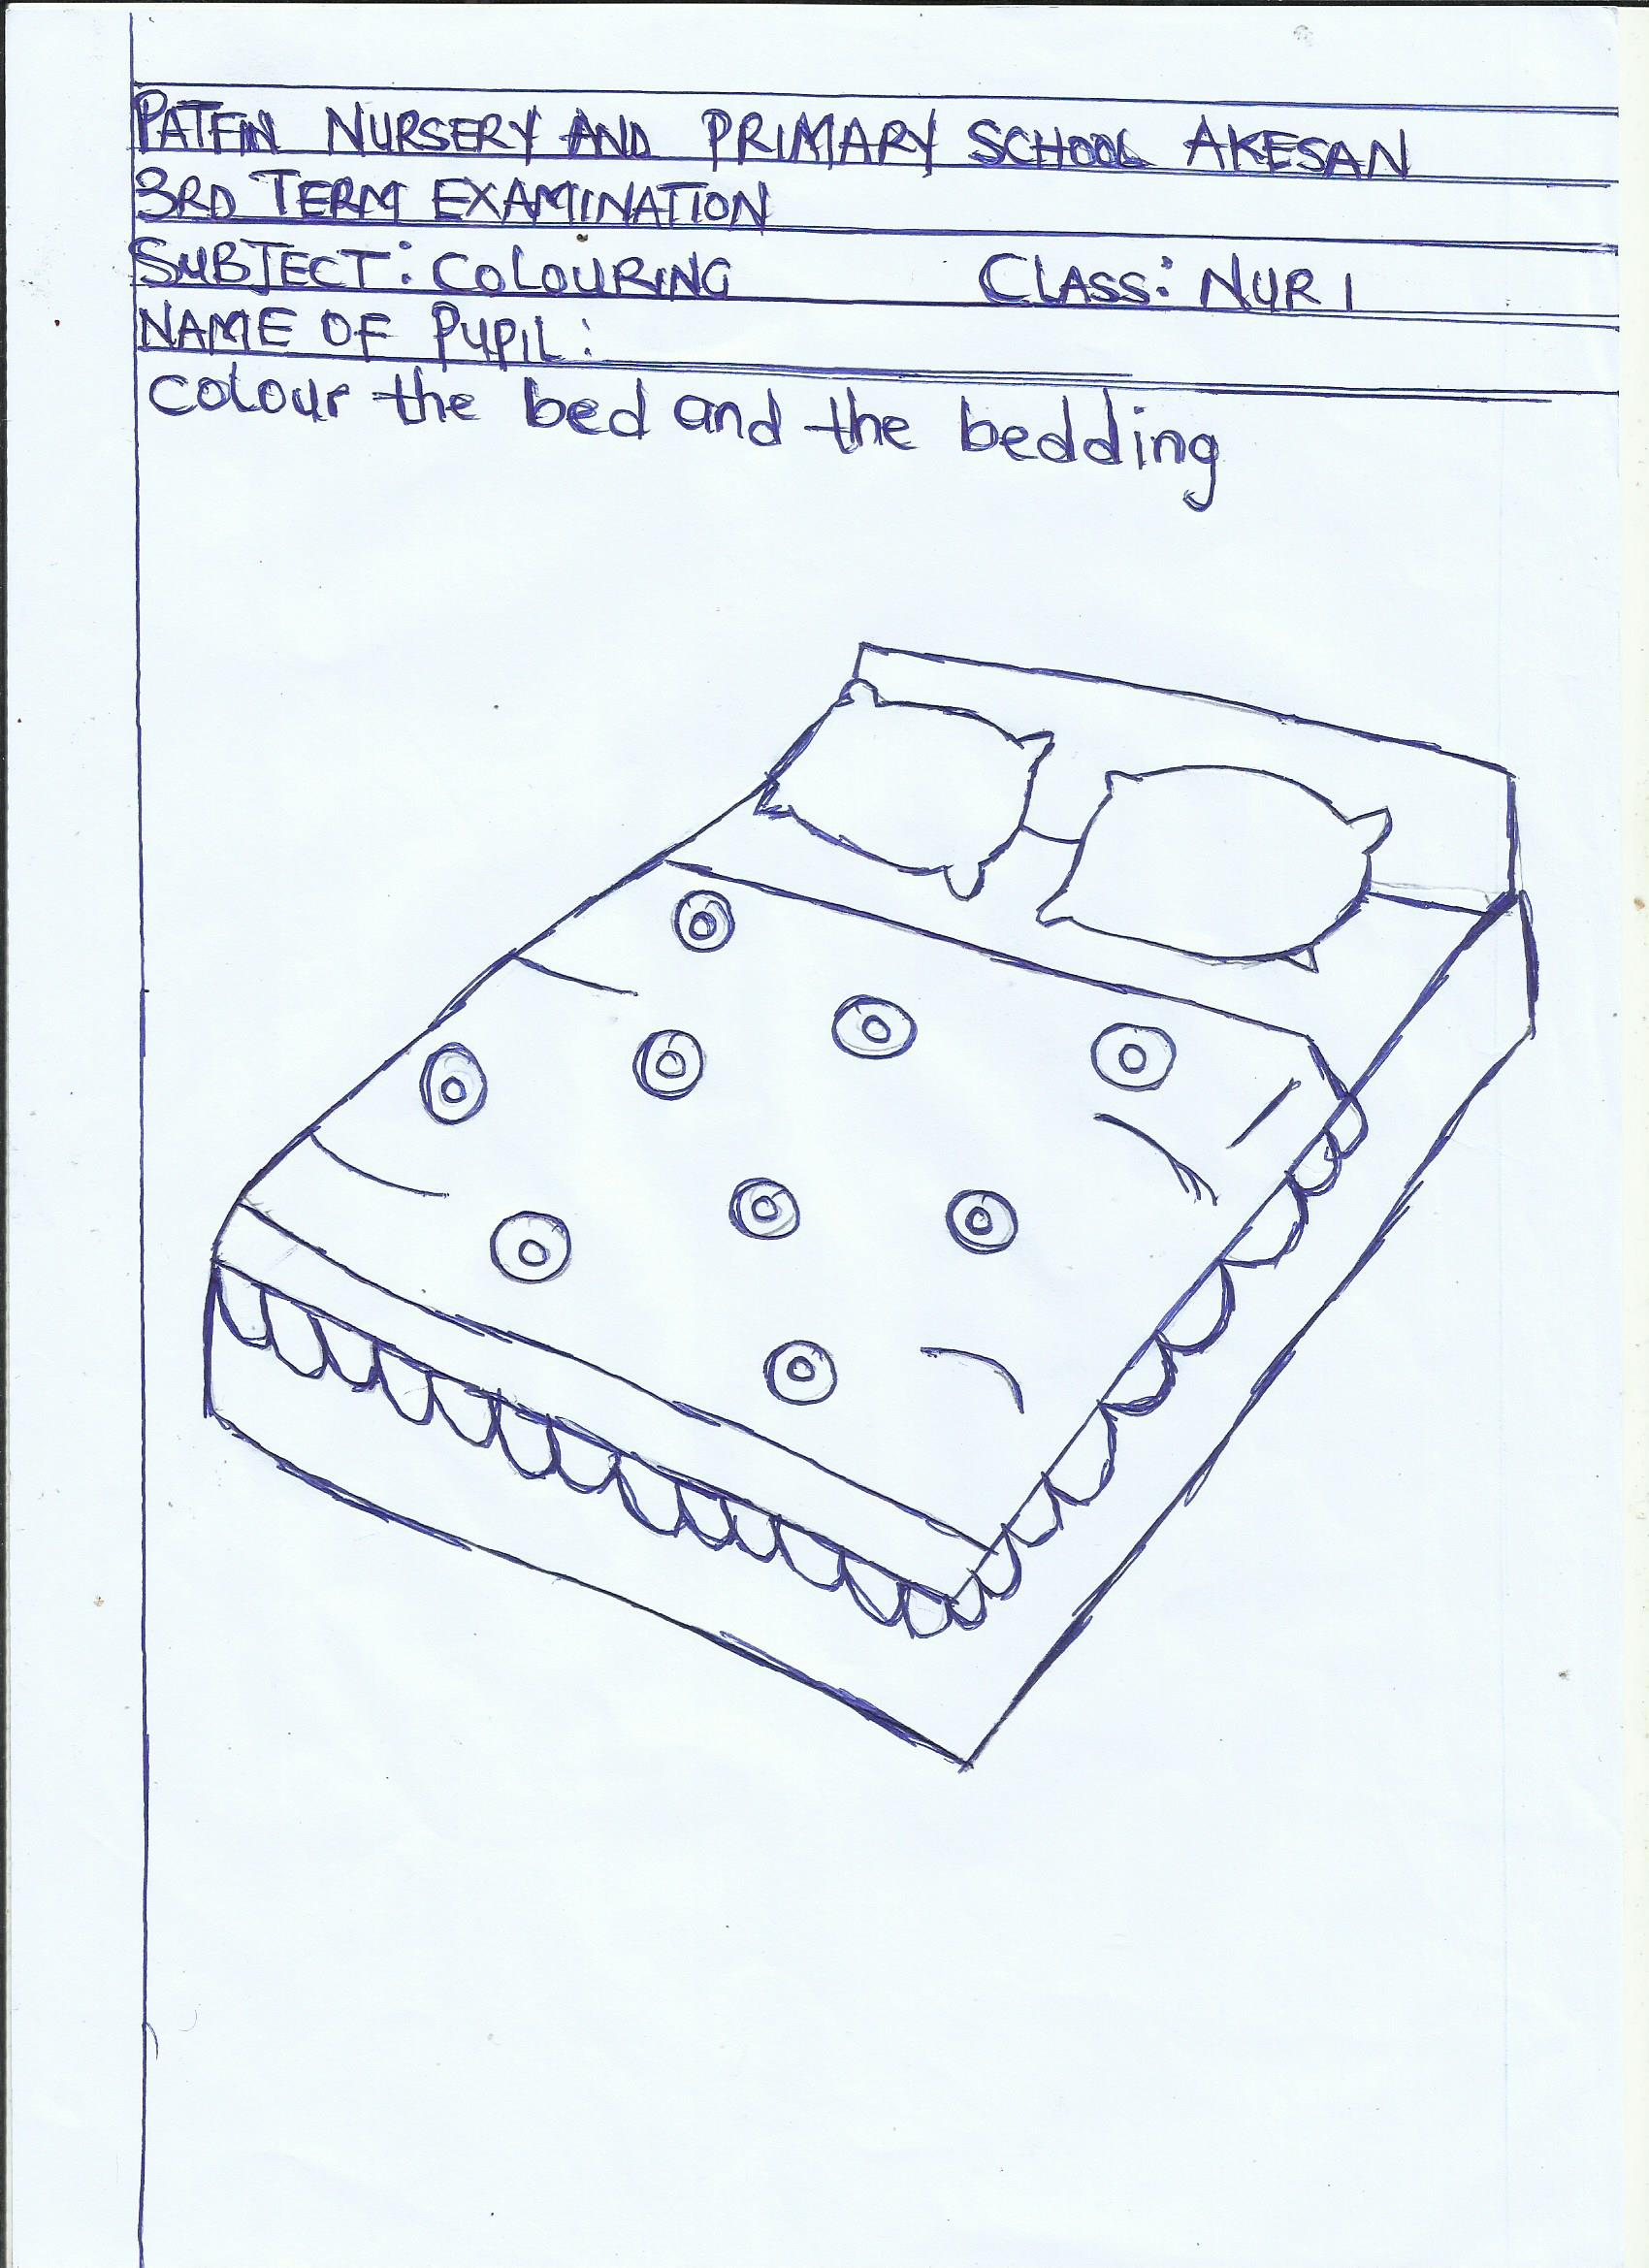 PATFIN NURSERY AND PRIMARY SCHOOL AKESAN
3RD TERM EXAMINATION
SUBJECT: COLOURING CLASS: NUR 1
NAME OF PUPIL:
colour the bed and the bedding